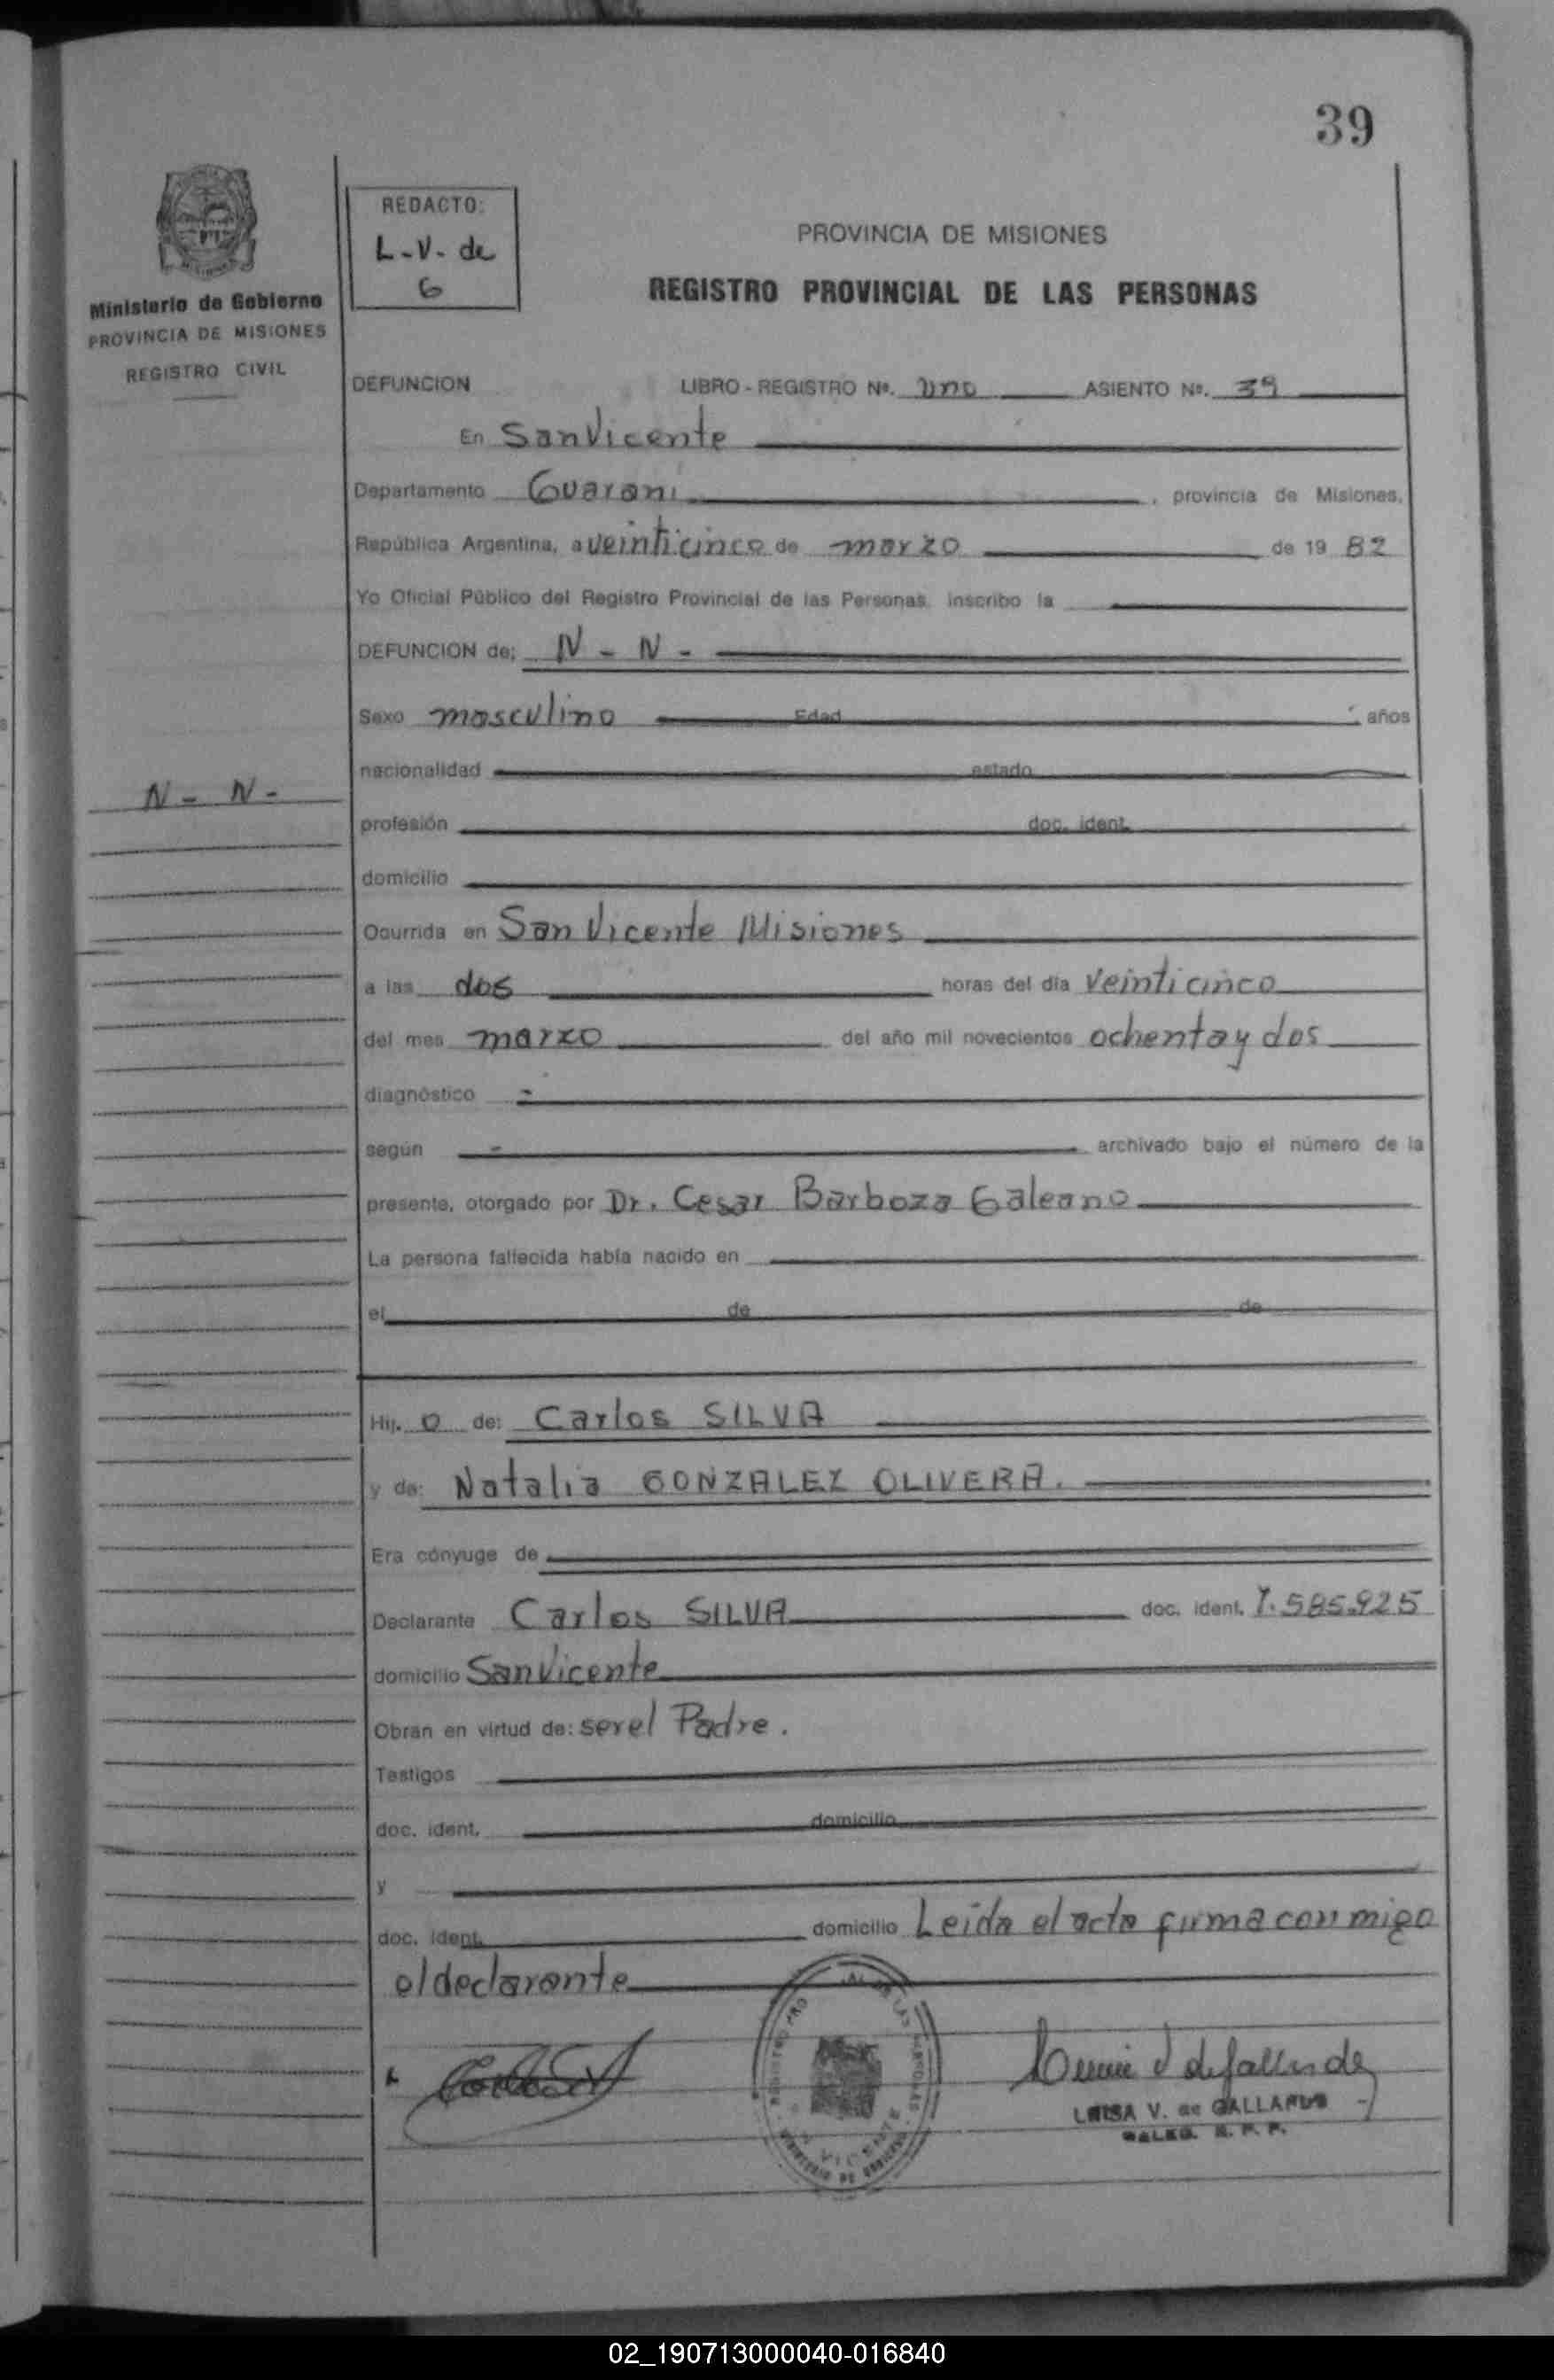 39
REDACTO:
L-V- de
G
Ministerio de Gobierno
PROVINCIA DE MISIONES
REGISTRO CIVIL
PROVINCIA DE MISIONES
REGISTRO PROVINCIAL DE LAS PERSONAS
DEFUNCION LIBRO - REGISTRO Nº. uno ASIENTO Nº. 39
En San Vicente
Departamento Guarani, provincia de Misiones,
República Argentina, a veinticinco de marzo de 19 82
Yo Oficial Público del Registro Provincial de las Personas, inscribo la
DEFUNCION de; N - N -
Sexo masculino Edad años
nacionalidad estado
N - N -
profesión doc. ident.
domicilio
Ocurrida en San Vicente Misiones
a las dos horas del día veinticinco
del mes marzo del año mil novecientos ochenta y dos
diagnóstico -
según - archivado bajo el número de la
presente, otorgado por Dr. Cesar Barboza Galeano
La persona fallecida había nacido en
el de de
Hij. o de: Carlos SILVA
y de: Natalia GONZALEZ OLIVERA.
Era cónyuge de
Declarante Carlos SILVA doc. ident. 7.585.925
domicilio San Vicente
Obran en virtud de: ser el Padre.
Testigos
doc. ident. domicilio
y
doc. ident. domicilio Leida el acta firma con migo
el declarante
LUISA V. de GALLARDO
R. P. P.
02_190713000040-016840